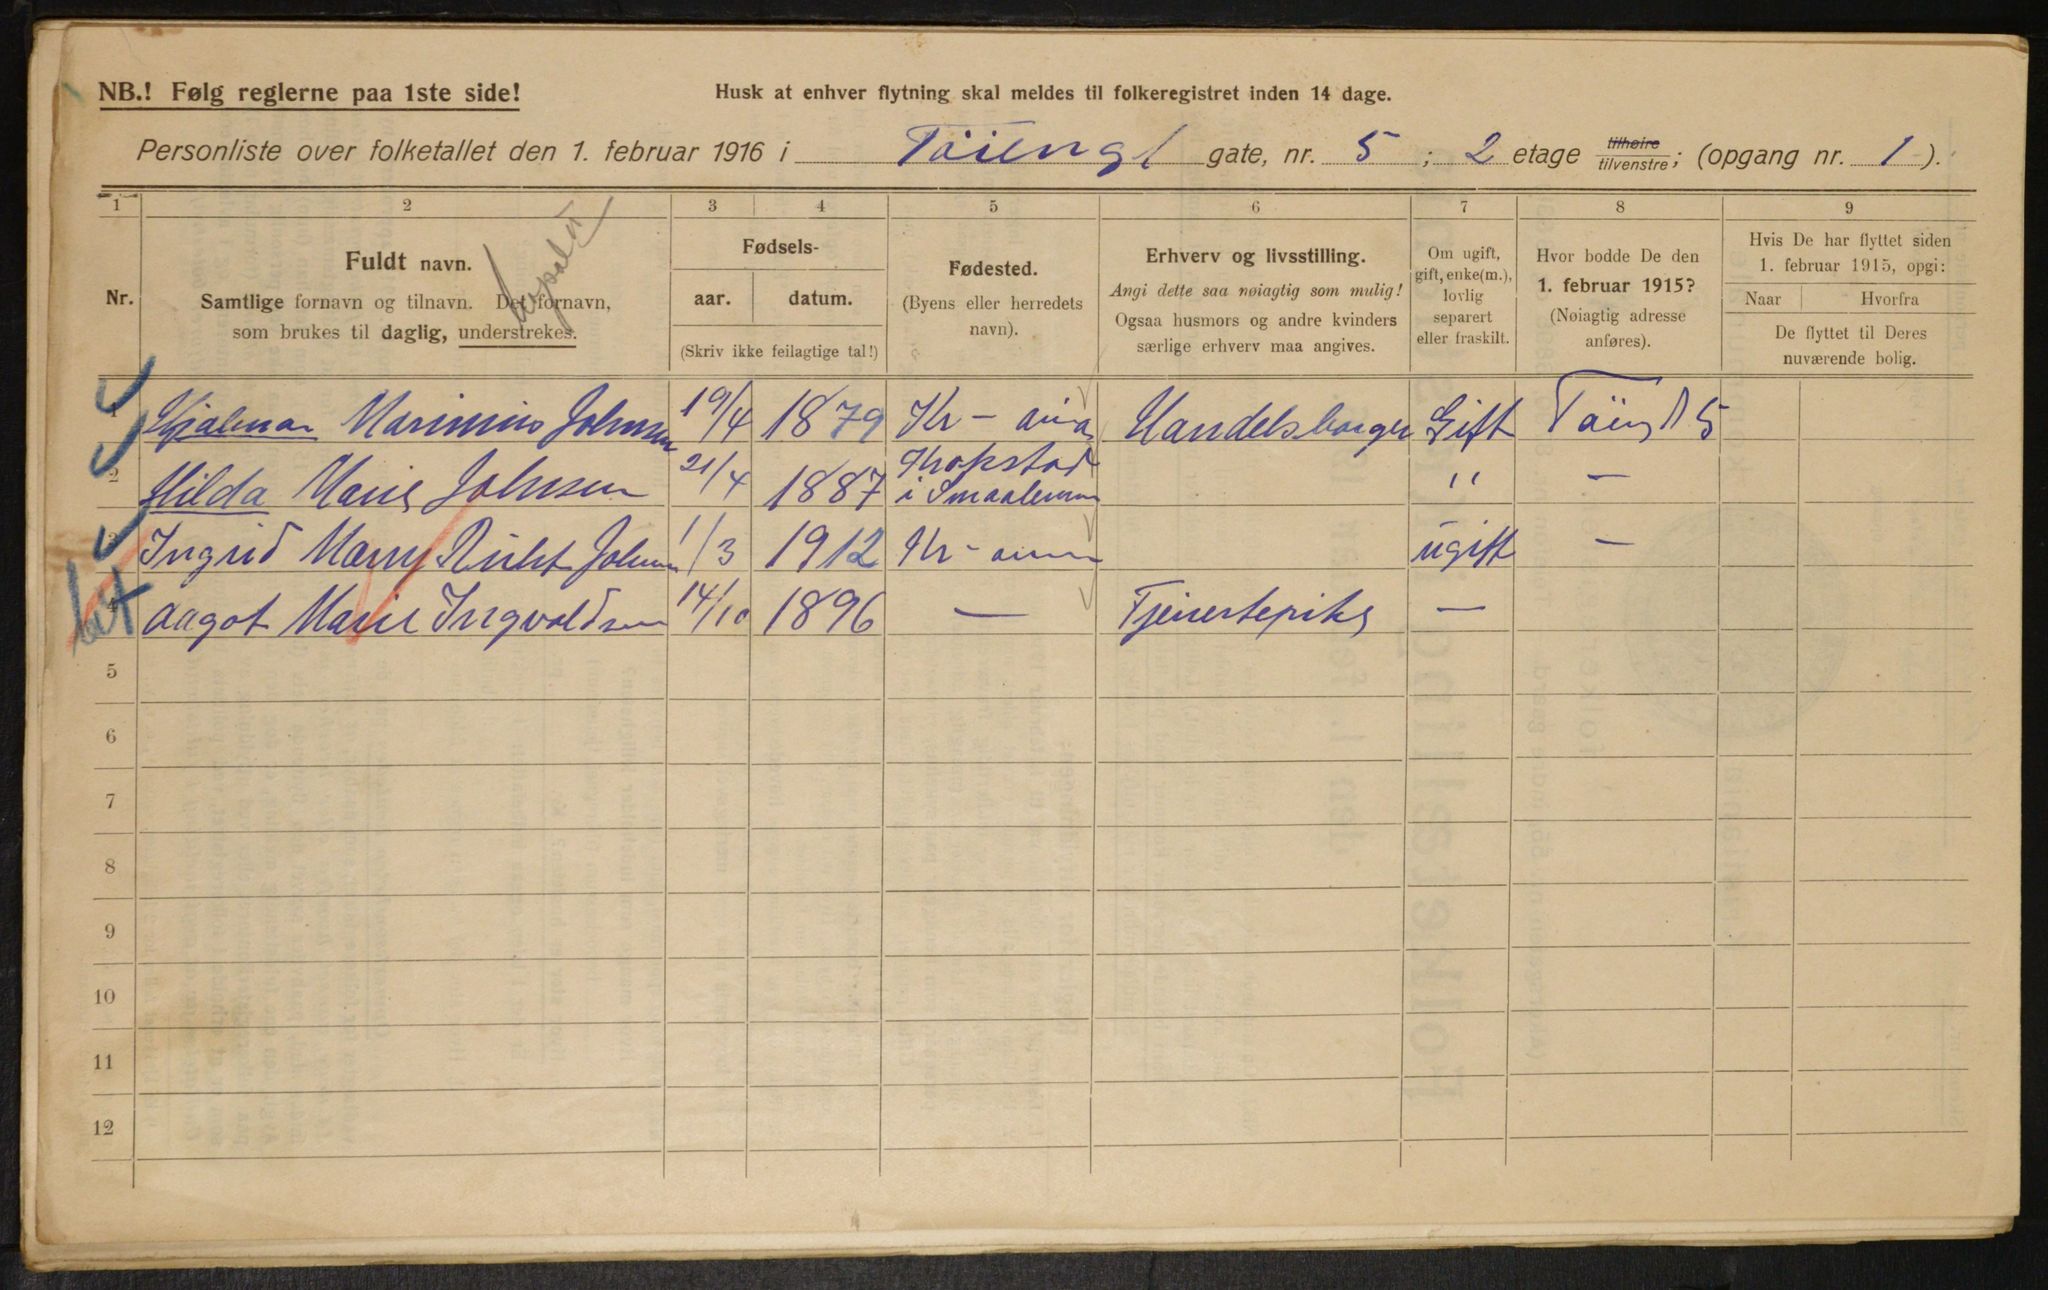 NB.! Følg reglerne paa 1ste side!
Husk at enhver flytning skal meldes til folkeregistret inden 14 dage.
Personliste over folketallet den 1. februar 1916 i Töieng gate, nr. 5 ; 2 etage tilhøire tilvenstre; (opgang nr. 1).
1 2 3 4 5 6 7 8 9
Nr.
Fuldt navn.
Samtlige fornavn og tilnavn. Det fornavn,
som brukes til daglig, understrekes.
Fødsels-
aar. datum.
(Skriv ikke feilagtige tal!)
Fødested.
(Byens eller herredets
navn).
Erhverv og livsstilling.
Angi dette saa nøiagtig som mulig!
Ogsaa husmors og andre kvinders
særlige erhverv maa angives.
Om ugift,
gift, enke(m.),
lovlig
separert
eller fraskilt.
Hvor bodde De den
1. februar 1915?
(Nøiagtig adresse
anføres).
Hvis De har flyttet siden
1. februar 1915, opgi:
Naar Hvorfra
De flyttet til Deres
nuværende bolig.
1 Hjalmar Marinius Johnsen 19/4 1879 Kr-ania Handelsborger Gift 5
2 Hilda Marie Johnsen 21/4 1887 i Smaalenene " —
3 Ingrid Johnsen 1/3 1912 Kr-ania ugift —
4 Aagot Marie Ingvoldsen 14/10 1896 — Tjenestepike —
5
6
7
8
9
10
11
12